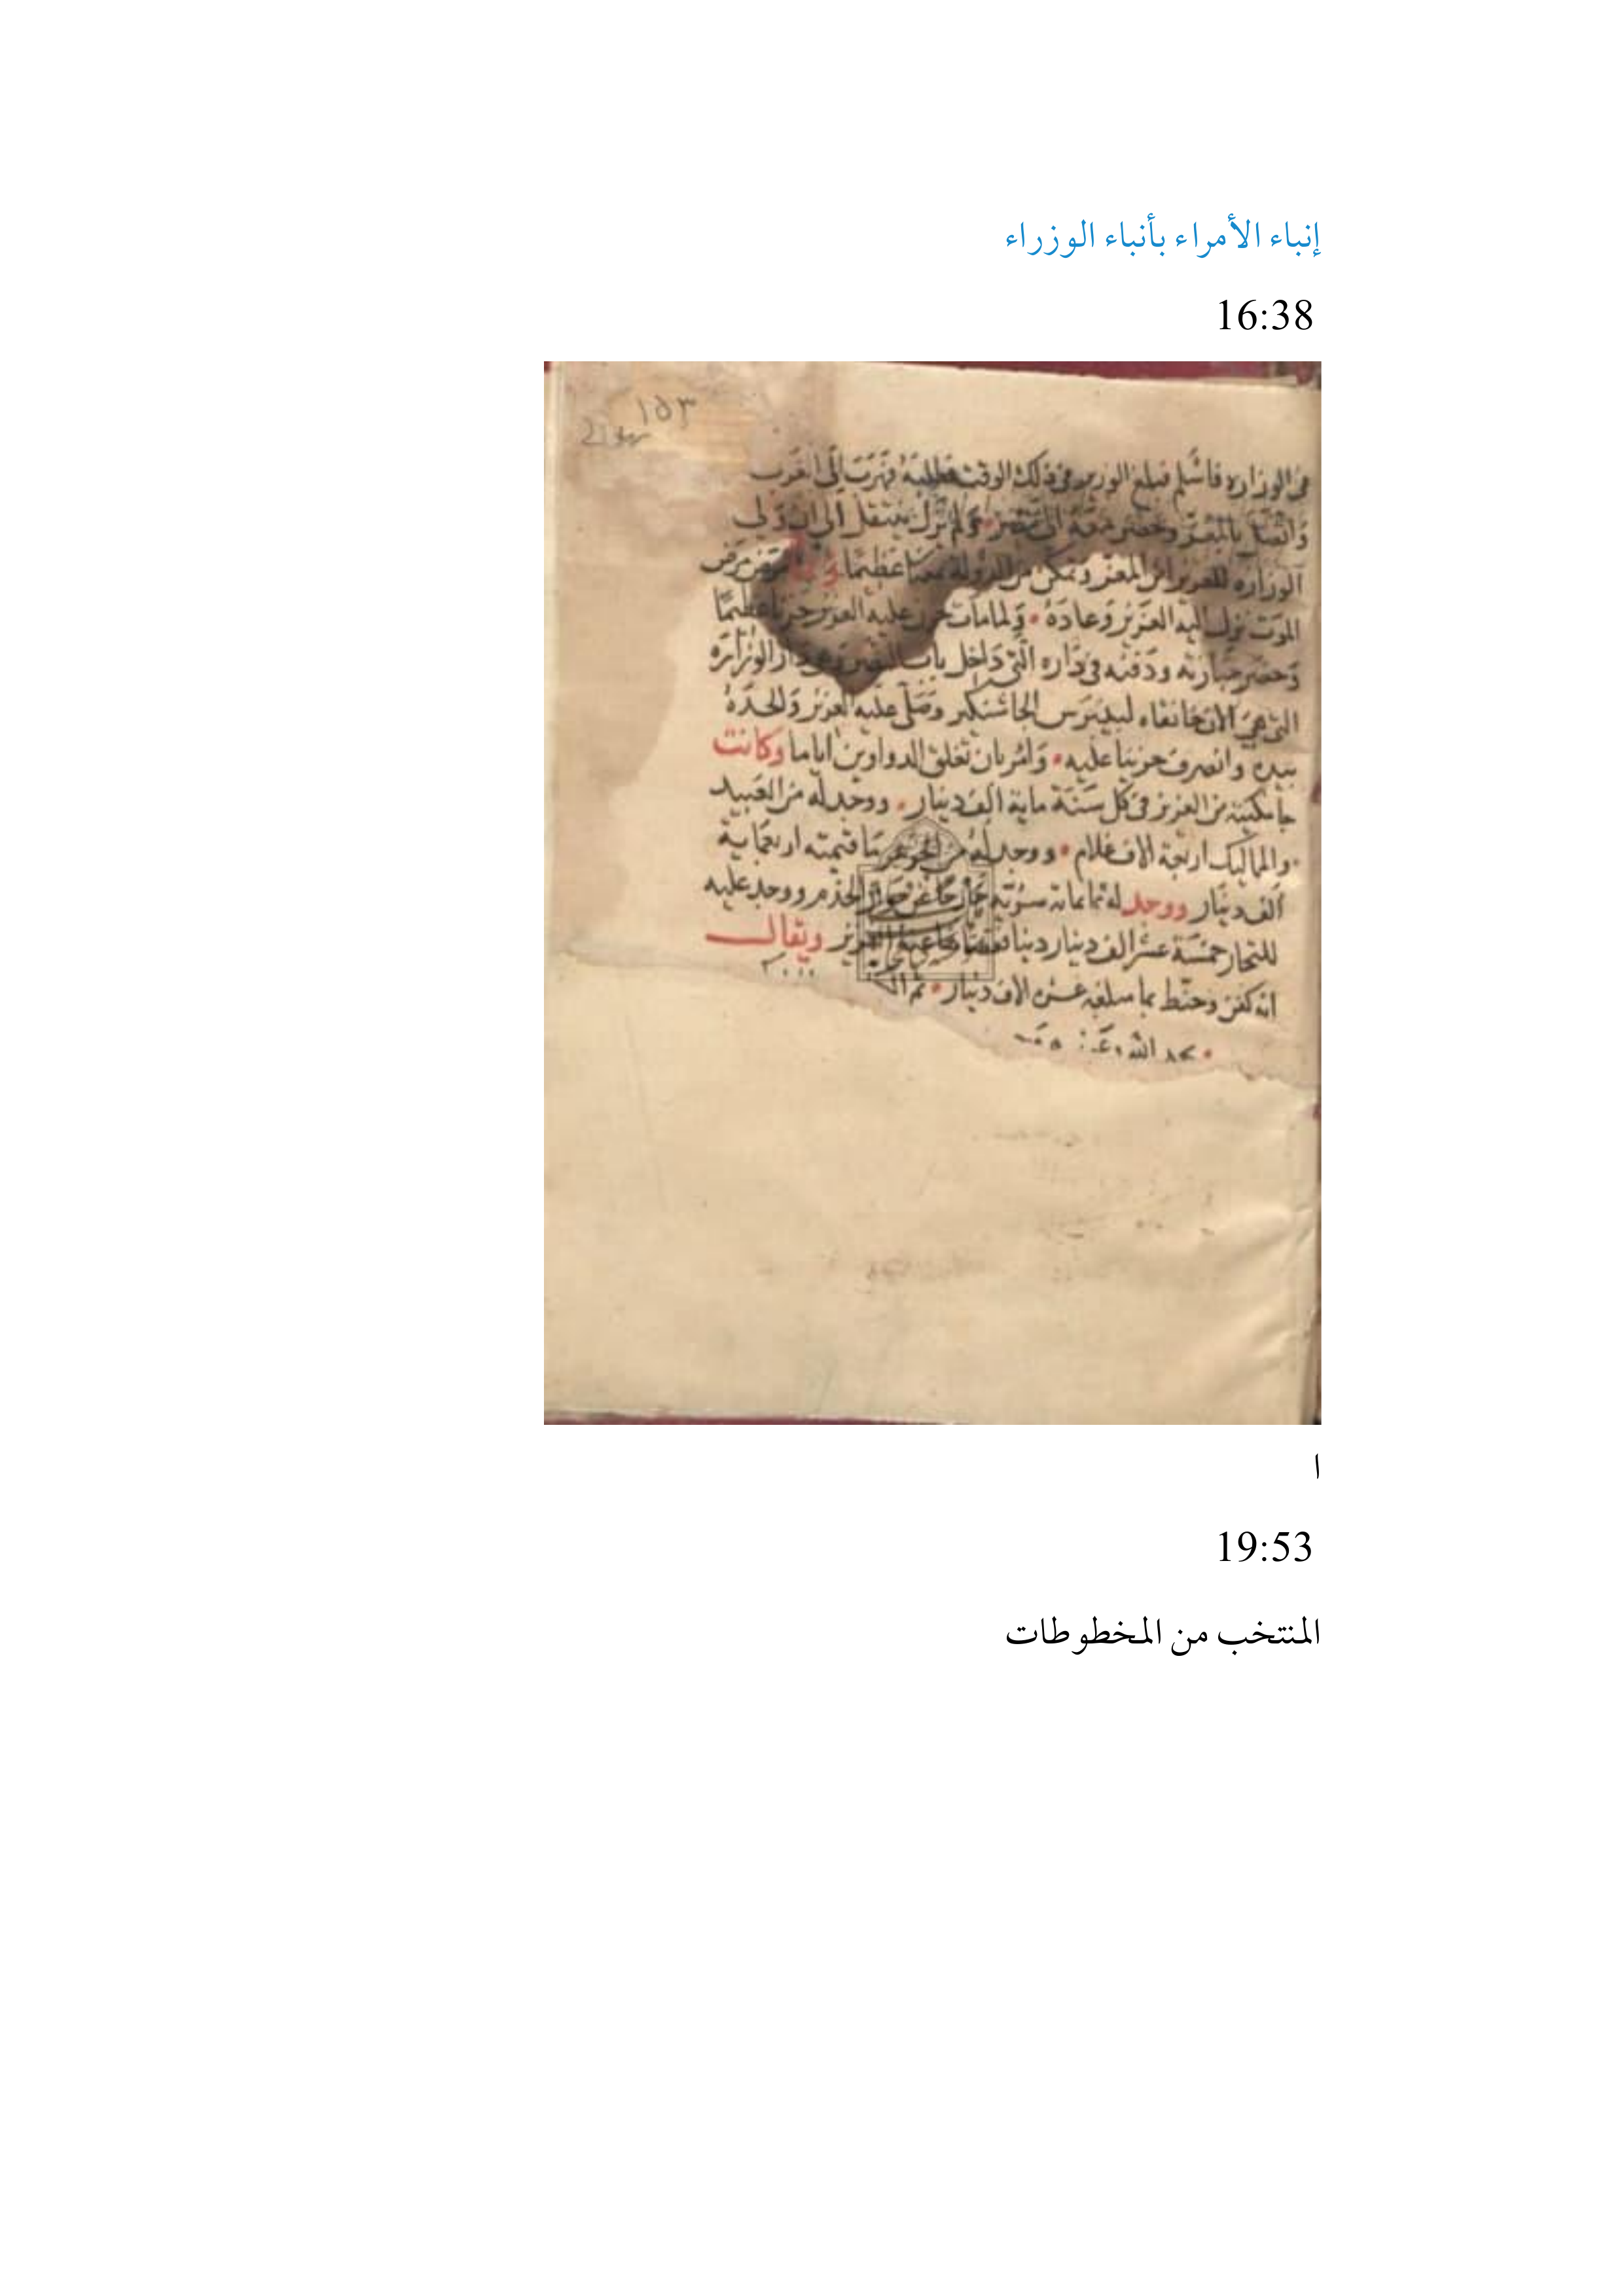 إنباء الأمراء بأنباء الوزراء
16:38
١٥٣
في الوزاره فاسلم فبلغ الوزير في ذلك الوقت فطلبه فهرب الى الغرب
واتصل بالمعز وحضر معه الى مصر ولم يزل ينتقل الى ان ولي
الوزاره للعزيز ابن المعز وتمكن من الدولة عظيما مرض
الموت نزل اليه العزيز وعاده ولما مات حزن عليه العزيز حزنا عظيما
وحضر جنازته ودفنه في داره التي داخل باب النصر دار الوزاره
التي هي الان خانقاه لبيبرس الجاشنكير وصلى عليه العزيز والحده
بيده وانصرف حزينا عليه وامر بان تغلق الدواوين اياما وكانت
جامكيته من العزيز في كل سنة ماية الف دينار ووجد له من العبيد
والمماليك اربعة الاف غلام ووجد له من الجوهر ما قيمته اربعماية
الف دينار ووجد له ثمانمائة خارجا عن جوار الخدم ووجد عليه
للتجار خمسة عشر الف دينار دينا العزيز ويقال
انه كفن وحنط بما مبلغه عشرة الاف دينار
الله
ا
19:53
المنتخب من المخطوطات